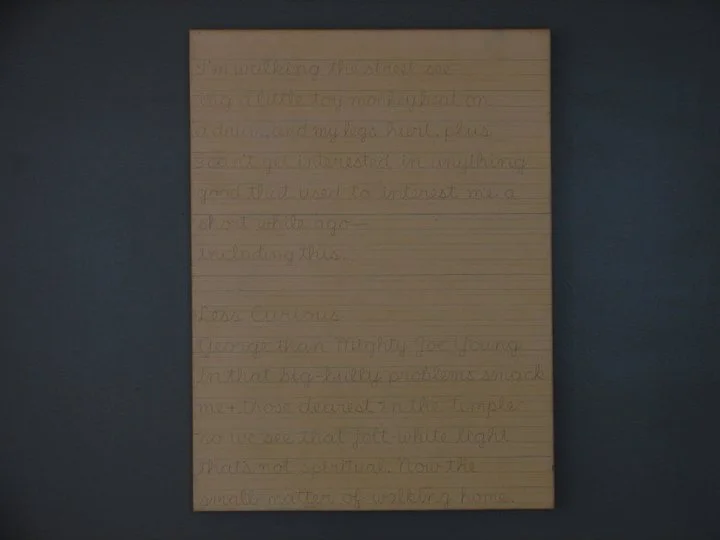 I'm walking the street see-
ing a little toy monkey beat on
a drum, and my legs hurt, plus
I can't get interested in anything
good that used to interest me a
short while ago—
including this.
Less Curious
George than Mighty Joe Young
in that big-bully problems smack
me + those dearest in the temple
so we see that jolt-white light
that's not spiritual. Now the
small matter of walking home.